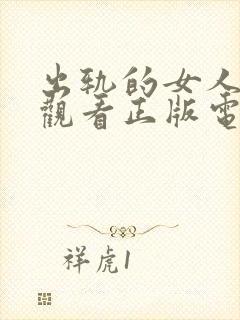 出轨的女人
觀看正版電
祥虎1